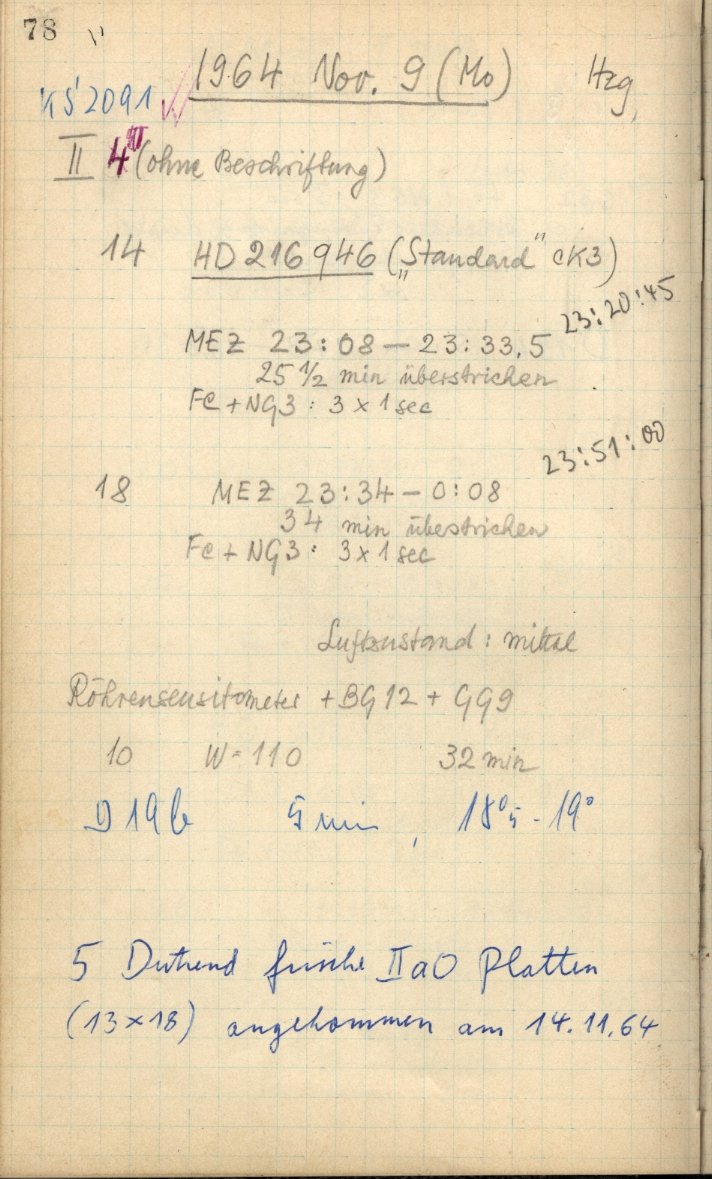 78
1964 Nov. 9 (Mo) Hzg,
KS 2091
II 4 (ohne Beschriftung)
14 HD 216946 („Standard" cK3)
23:20:45
MEZ 23:08 – 23:33,5
25 1/2 min überstrichen
Fe + NG3 : 3 x 1 sec
23:51:00
18 MEZ 23:34 – 0:08
34 min überstrichen
Fe + NG3 : 3 x 1 sec
Luftzustand : mittel
Röhrensensitometer + BG12 + GG9
10 W = 110 32 min
D 19 b 5 min , 18°,5 - 19°
5 Dutzend frische IIaO Platten
(13 x 18) angekommen am 14.11.64